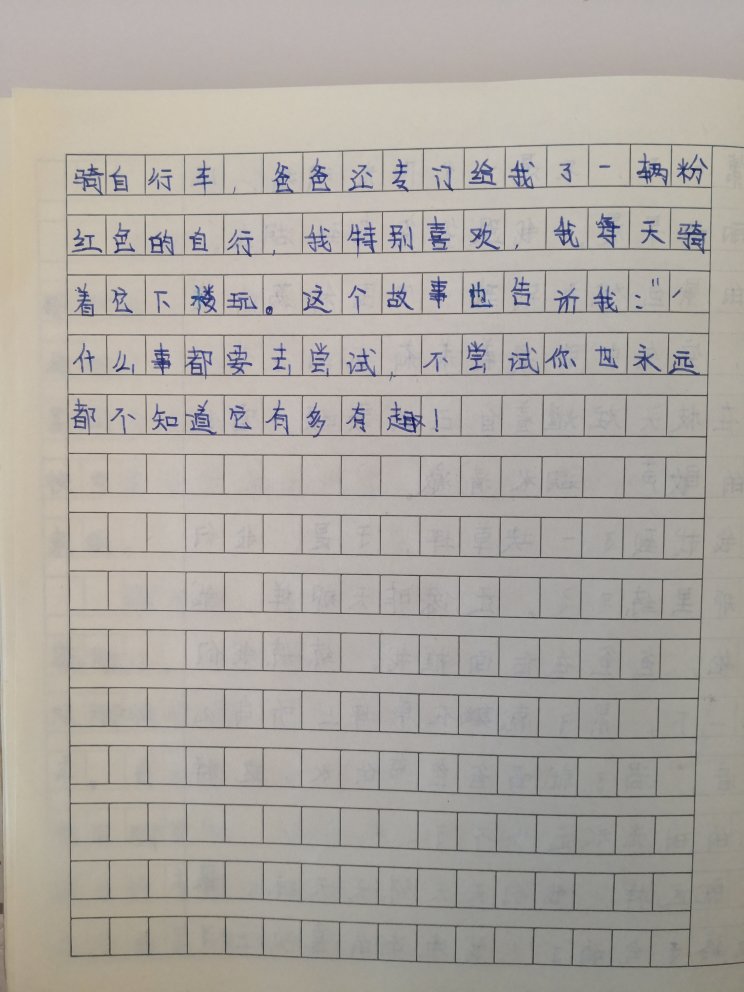 骑自行车，爸爸还专门给我了一辆粉
红色的自行，我特别喜欢，我每天骑
着它下楼玩。这个故事也告诉我：“
什么事都要去尝试，不尝试你也永远
都不知道它有多有趣！